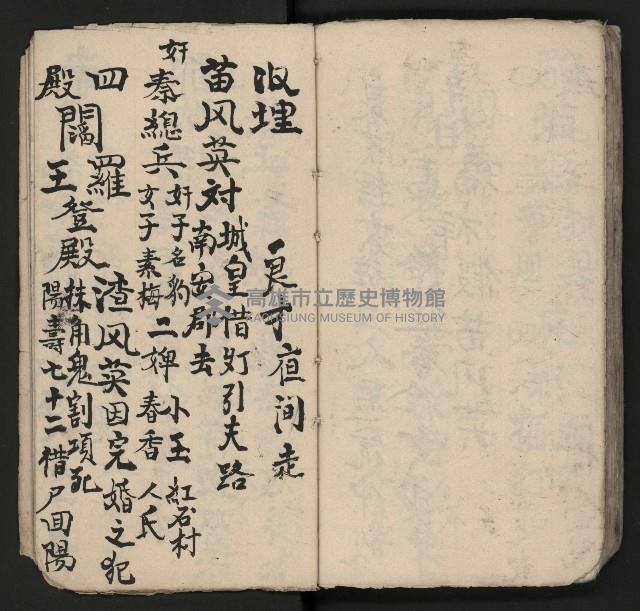 收埋　良才夜间走
苗风英对城皇借灯引夫路
南安府去
奸
秦總兵奸子名豹 小玉 紅石村
女子素梅 二婢 春香 人氏
四闇羅 渣风英因完婚之犯
殿王登殿 株角鬼割項死
陽壽七十二借尸回陽
高雄市立歷史博物館
KAOHSIUNG MUSEUM OF HISTORY